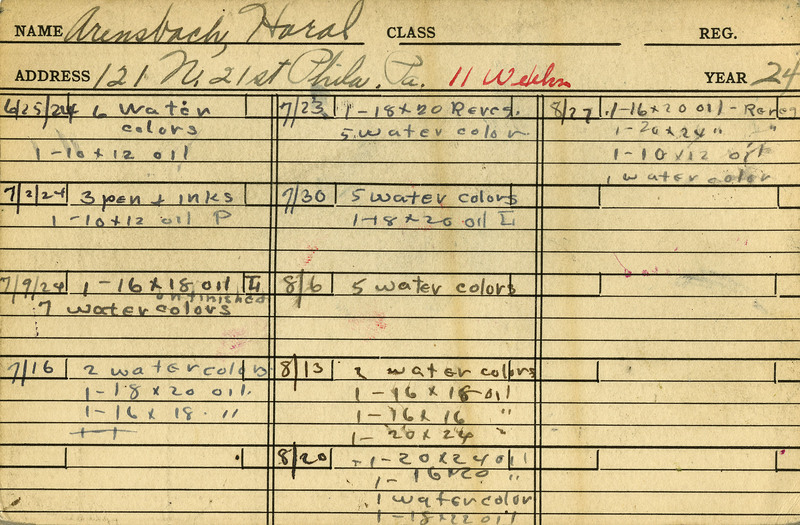 NAME Arensbach, Haral CLASS REG.
ADDRESS 121 N. 21st Phila. Pa. 11 Weeks YEAR 24
6/25/24 6 Water
colors
1-10x12 oil
7/2/24 3 pen + inks
1-10x12 oil P
7/9/24 1-16x18 oil L
unfinished
7 water colors
7/16 2 watercolors
1-18x20 oil.
1-16x18 "
7/23 1-18x20 Revcs.
5 water color
7/30 5 water colors
1-18x20 oil L
8/6 5 water colors
8/13 2 water colors
1-16x18 oil
1-16x16 "
1-20x24 "
8/20 1-20x24 oil
1-16x20 "
1 watercolor
1-18x22 oil
8/27 1-16x20 oil-
1-20x24 " "
1-10x12 oil
1 water color